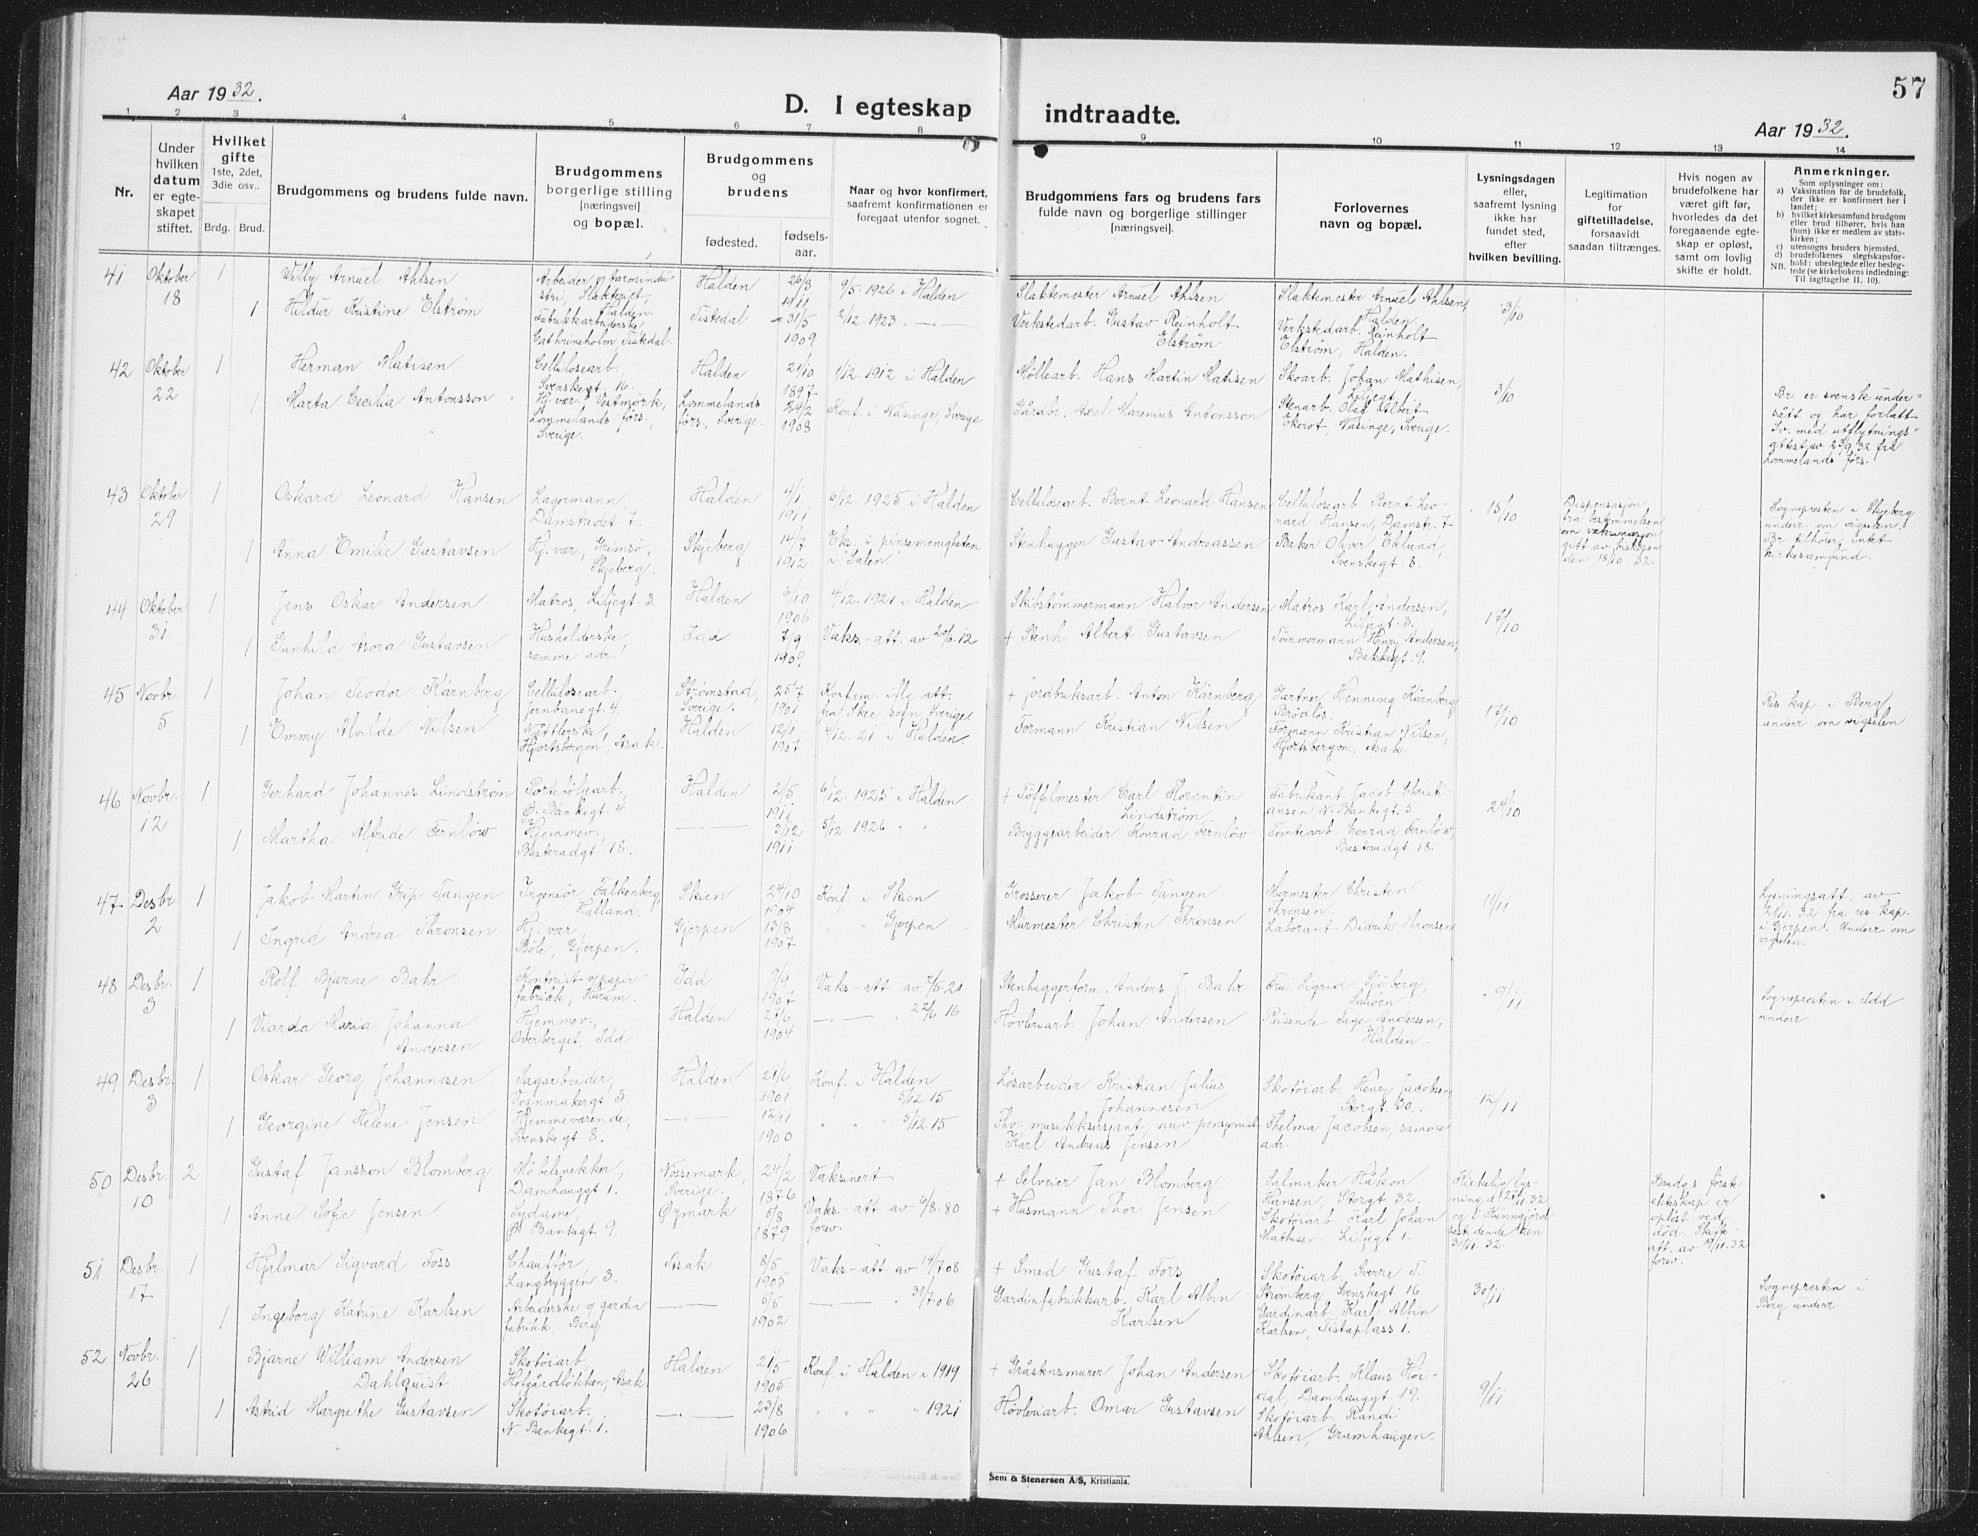 57
Aar 1932.
D. I egteskap indtraadte.
Aar 1932.
1 2 3 4 5 6 7 8 9 10 11 12 13 14
Nr.
Under hvilken datum er egte-skapet stiftet.
Hvilket gifte 1ste, 2det, 3die osv..
Brdg. Brud.
Brudgommens og brudens fulde navn.
Brudgommens borgerlige stilling [næringsvei] og bopæl.
Brudgommens og brudens
fødested. fødsels-aar.
Naar og hvor konfirmert, saafremt konfirmationen er foregaat utenfor sognet.
Brudgommens fars og brudens fars fulde navn og borgerlige stillinger [næringsvei].
Forlovernes navn og bopæl.
Lysningsdagen eller, saafremt lysning ikke har fundet sted, efter hvilken bevilling.
Legitimation for giftetilladelse, forsaavidt saadan tiltrænges.
Hvis nogen av brudefolkene har været gift før, hvorledes da det foregaaende egte-skap er opløst, samt om lovlig skifte er holdt.
Anmerkninger.
Som oplysninger om:
a) Vaksination for de brudefolk, der ikke er konfirmert her i landet;
b) hvilket kirkesamfund brudgom eller brud tilhører, hvis han (hun) ikke er medlem av stats-kirken;
c) utensogns bruders hjemsted.
d) brudefolkenes slegtskapsfor-hold: ubeslegtede eller besleg-tede (se kirkebokens indledning: NB. Til iagttagelse II. 10).
41 Oktober 18 1 Villy Arnuel Ahlsen Halden 26/3 1911 9/5. 1926 i Halden Slaktemester Arnuel Ahlsen Slaktemester Arnuel Ahlsen, Halden. 3/10
1 Hildur Kristine Elstrøm Fabrikkarbeiderske, Cathrineholm, Tistedal. Tistedal 31/5 1909 2/12. 1923 Verkstedarb. Gustav Reinholt Elstrøm Verkstedarb. Reinholt Elstrøm, Halden.
42 Oktober 22 1 Herman Matisen Cellulosearb. Svenskegt. 16. Halden 21/10 1897 1/12. 1912 i Halden Møllearb. Hans Martin Matisen Skoarb. Johan Mathisen, Liljegt. 3/10
1 Marta Cecilia Antonsson Hj. vær. Vestmørk, Lommelands förs., Sverige. Lommelands förs., Sverige. 24/2 1908 Konf. i Näsinge, Sverige Gårdbr. Axel Marenius Antonsson Stenarb. Olaf Albert Ekerot, Näsinge, Sverige. Br. er svensk under-sått og har forlatt Sv. med utflytnings-attest av 23/9 32 fra Lommelands förs.
43 Oktober 29 1 Oskard Leonard Hansen Lagermann, Damstredet 7. Halden 4/1 1911 6/12. 1925 i Halden Cellulosearb. Bernt Leonard Hansen Cellulosearb. Bernt Leo-nard Hansen, Damstr. 7. 15/10 Dispensasjon fra bestemmelsen om vaksinasjon gitt av bispen den 18/10. 32. Sognepresten i Skjeberg underr. om vigselen. Br. tilhører intet kirkesamfund.
1 Anna Emilie Gustavsen Hj. vær., Grimsø, Skjeberg. Skjeberg 14/7 1912 i pinsemenigheten Stenhugger Gustav Andreassen Baker Oliver Eklund, Svenskegt. 8.
44 Oktober 31 1 Jens Oskar Andersen Matros, Liljegt. 3. Halden 6/10 1906 4/12. 1921 i Halden Skibstømmermann Halvor Andersen Matros Karl Andersen, Liljegt. 3. 17/10
1 Gunhild Nora Gustavsen Husholderske, samme adr. Idd 7/9 1909 Vaks.-att. av 20/6. 12 + Stenh. Albert Gustavsen Tømmermann Henry Andersen, Bakkegt. 9.
45 Novbr. 5 1 Johan Teodor Kärnberg Cellulosearb. Jernbanegt. 4. Strømstad, Sverige. 25/7 1901 Konfirm. iflg. att. fra Skee sogn, Sverige. + Jordbruksarb. Anton Kärnberg Gartner Henning Kärnberg, Brödløs. 17/10 Res. kap. i Berg underr. om vigselen.
1 Emmy Alvilde Nilsen Nåttlerske, Hjortsbergvn., Asak. Halden 12/1 1907 4/12. 21 i Halden. Formann Kristian Nilsen Formann Kristian Nilsen, Hjortsbergvn., Asak.
46 Novbr. 12 1 Gerhard Johannes Lindstrøm Porteføljearb. Ø. Bankegt. 4. Halden 2/5 1911 6/12. 1925 i Halden + Tøffelmester Carl Florentin Lindstrøm Fabrikant Jacob Christi-ansen N. Bankegt. 5 24/10
1 Martha Alfride Fernlöw Hjemmev., Busterudgt. 18. 3/12 1911 5/12. 1926 Bryggearbeider Konrad Fernlöw Tomtearb. Conrad Fernlöw, Busterudgt. 18.
47 Desbr. 2 1 Jakob Martin Grip Tangen Ingeniør, Falkenberg, Halland. Skien 24/10 1904 Konf. i Skien Grosserer Jakob Tangen Murmester Christen Thronsen. 11/11 Lysningsatt. av 24/11. 32 fra res. kap. i Gjerpen. Underr. om vigselen.
1 Ingrid Andrea Thronsen Hj. vær., Bøle, Gjerpen. Gjerpen 13/8 1907 Gjerpen Murmester Christen Thronsen Laborant Didrik Thronsen
48 Desbr. 3 1 Rolf Bjarne Bahr Kontorist v/papir-fabrikk, Hurum. Idd 9/9 1907 Vaks-att av 2/5. 21 Stenhuggerform. Anders J. Bahr Fru Sigrid Sjöberg, 9/11 Sognepresten i Idd underr.
1 Viarda Maria Johanna Andersen Hjemmev., Overberget, Idd Halden 27/6 1904 22/6. 16 Høvleriarb. Johan Andersen Reisende Tage Andersen, Halden.
49 Desbr. 3 1 Oskar Georg Johannesen Sagarbeider, Vognmakergt 3. Halden 21/6 1901 Konf. i Halden 5/12. 15 Løsarbeider Kristian Julius Johannesen Skotøiarb. Henry Jacobsen, Storgt. 30. 12/11
1 Georgine Helene Jensen Hjemmeværende, Svenskegt. 8. 12/11 1900 5/12. 15 Fhv. musikksersjant, nuv. pensjonist Karl Andreas Jensen Thelma Jacobsen, samme adr.
50 Desbr. 10 2 Gustaf Jansson Blomberg Møbelsnekker, Damhauggt 1. Nössemark, Sverige. 24/2 1876 Vaksinert + Selveier Jan Blomberg Salmaker Håkon Hansen, Storgt. 32. Kirkelig lys-ning d. 27/11. 32 og i Kunngjørd-estidende den 30/11. 32. Brudg.s første ekteskap er opløst ved død. Skifte att. av 9/11. 32 forev.
1 Anne Sofie Jensen Sydame, Ø. Bankegt. 9. Øymark 5/8 1879 Vaks.-att av 6/8. 80 forev. + Husmann Thor Jensen Skotøiarb. Karl Johan Mathisen, Liljegt 1.
51 Desbr. 17 1 Hjalmar Sigvard Foss Chauffør, Langbryggen 3. Asak 8/5 1905 Vaks-att av 14/7 08 + Smed Gustaf Fors Skotøiarb. Sverre F. Strømberg, Svenskegt 16 30/11 Sognepresten i Berg underr
1 Ingeborg Katrine Karlsen Arbeiderske v/ gardin-fabrikk, Berg 6/5 1902 31/7. 06 Gardinfabrikkarb. Karl Albin Karlsen Gardinarb. Karl Albin Karlsen, Tistaplass 1.
52 Novbr. 26 1 Bjarne William Andersen Dahlquist Skotøiarb., Hofgårdløkken, Asak. Halden 21/5 1905 Konf. i Halden i 1919 + Gråstensmurer Johan Andersen Skotøiarb. Klaus Høi-dal, Damhauggt 19. 9/11
1 Astrid Margrethe Gustavsen Skotøiarb. N. Bankegt. 1. 23/8 1906 1921 Høvleriarb. Omar Gustavsen Skotøiarb. Randi Ahlsen, Gramhaugen.
Sem & Stenersen A/S, Kristiania.